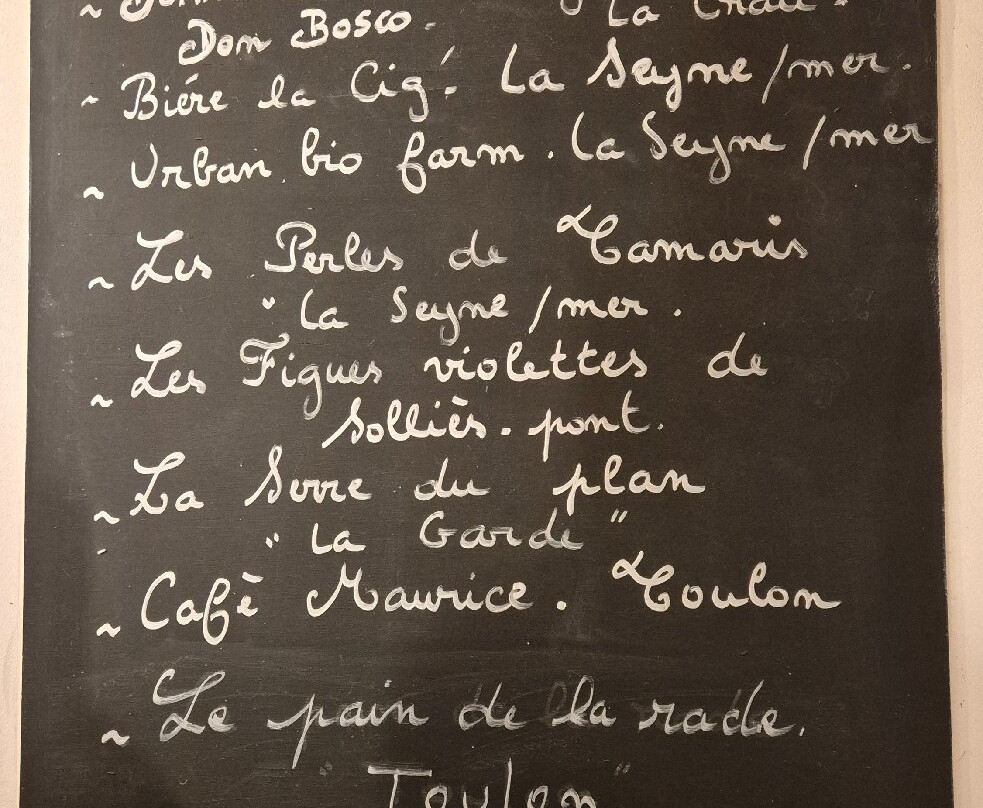 Don Bosco.
~ Biére la Cig'. La Seyne/mer.
~ Urban bio farm. la Seyne/mer
~ Les Perles de Tamaris
" la Seyne/mer.
~ Les Figues violettes de
Solliès-pont.
~ La Serre du plan
" La Garde "
~ Cafè Maurice. Toulon
~ Le pain de la rade.
" Toulon "